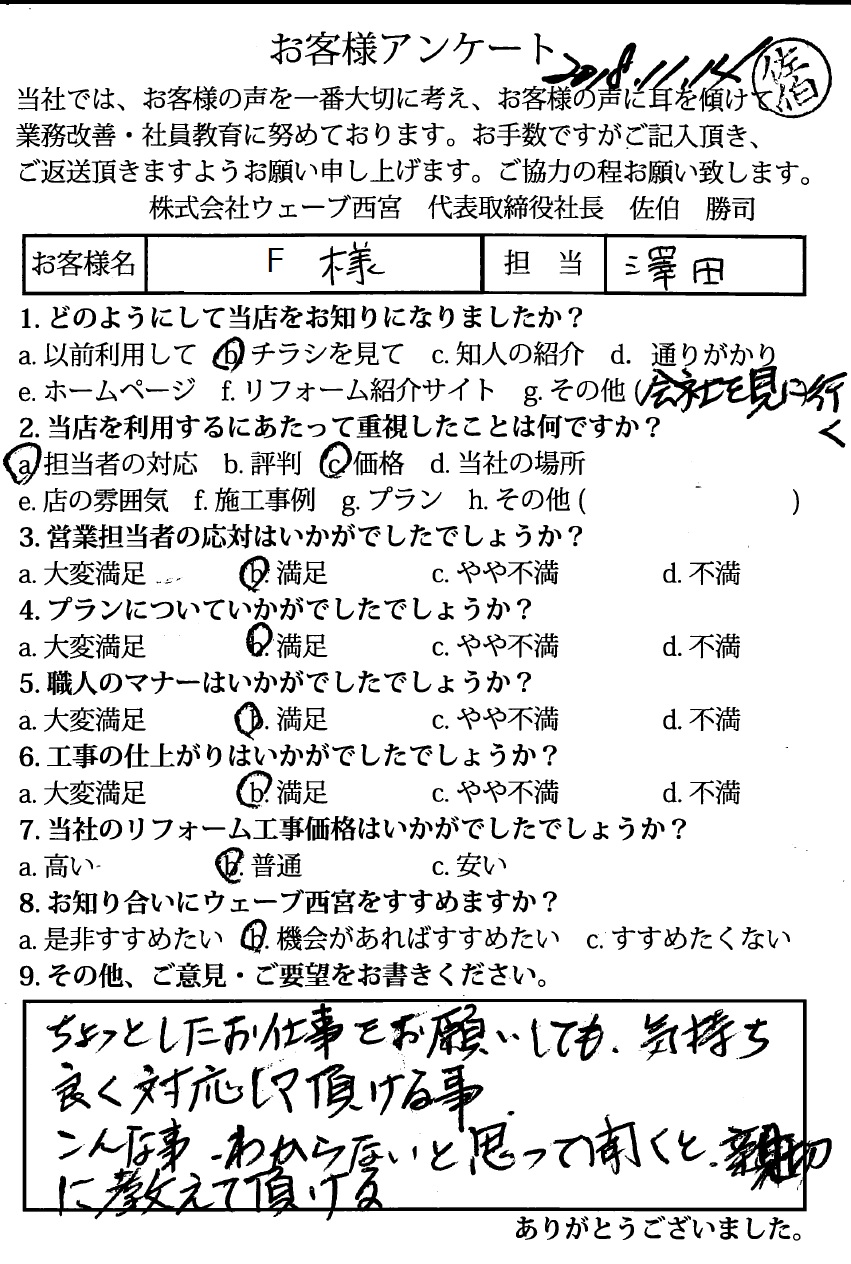 お客様アンケート 2018.11.14 佐伯
当社では、お客様の声を一番大切に考え、お客様の声に耳を傾けて
業務改善・社員教育に努めております。お手数ですがご記入頂き、
ご返送頂きますようお願い申し上げます。ご協力の程お願い致します。
株式会社ウェーブ西宮 代表取締役社長 佐伯 勝司
お客様名 F 様 担 当 澤田
1. どのようにして当店をお知りになりましたか？
a. 以前利用して b チラシを見て c. 知人の紹介 d. 通りがかり
e. ホームページ f. リフォーム紹介サイト g. その他 (会社を見に行
く
2. 当店を利用するにあたって重視したことは何ですか？
a 担当者の対応 b. 評判 c 価格 d. 当社の場所
e. 店の雰囲気 f. 施工事例 g. プラン h. その他 ( )
3. 営業担当者の応対はいかがでしたでしょうか？
a. 大変満足 b. 満足 c. やや不満 d. 不満
4. プランについていかがでしたでしょうか？
a. 大変満足 b. 満足 c. やや不満 d. 不満
5. 職人のマナーはいかがでしたでしょうか？
a. 大変満足 b. 満足 c. やや不満 d. 不満
6. 工事の仕上がりはいかがでしたでしょうか？
a. 大変満足 b. 満足 c. やや不満 d. 不満
7. 当社のリフォーム工事価格はいかがでしたでしょうか？
a. 高い b. 普通 c. 安い
8. お知り合いにウェーブ西宮をすすめますか？
a. 是非すすめたい b. 機会があればすすめたい c. すすめたくない
9. その他、ご意見・ご要望をお書きください。
ちょっとしたお仕事をお願いしても、気持ち
良く対応して頂ける事.
こんな事、わからないと思って聞くと、親切
に教えて頂ける
ありがとうございました。